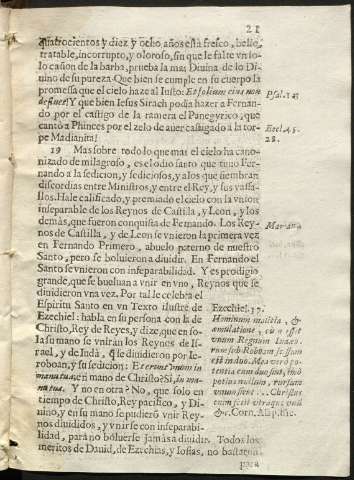 21
quatrocientos y diez y ocho años està fresco, bello,
tratable, incorrupto, y oloroso, sin que le falte vn so-
lo cañon de la barba, prueba la mas Diuina de lo Di-
uino de su pureza. Que bien se cumple en su cuerpo la
promessa que el cielo haze al Iusto: Et folium eius non
defluet! Y que bien Iesus Sirach podia hazer a Fernan-
do por el castigo de la ramera el Panegyrico, que
cantò a Phinees por el zelo de auer castigado a la tor-
pe Madianita!
19 Mas sobre todo lo que mas el cielo ha cano-
nizado de milagroso, es el odio santo que tuuo Fer-
nando a la sedicion, y sediciosos, y a los que siembran
discordias entre Ministros, y entre el Rey, y sus vassa-
llos. Hale calificado, y premiado el cielo con la vnion
inseparable de los Reynos de Castilla, y Leon, y los
demàs, que fueron conquista de Fernando. Los Rey-
nos de Castilla, y de Leon se vnieron la primera vez
en Fernando Primero, abuelo paterno de nuestro
Santo, pero se boluieron a diuidir. En Fernando el
Santo se vnieron con inseparabilidad. Y es prodigio
grande, que se bueluan a vnir en vno, Reynos que se
diuidieron vna vez. Por tal le celebra el
Espiritu Santo en vn Texto ilustre de
Ezechiel: habla en su persona con la de
Christo, Rey de Reyes, y dize, que en so-
la su mano se vniràn los Reynos de Is-
rael, y de Iudà, q̃ se diuidieron por Ie-
roboan, y su sedicion: Et erunt vnum in
manu tua, en mano de Christo? Si, in ma-
nu tua. Y no en otra? No, que solo en
tiempo de Christo, Rey pacifico, y Di-
uino, y en su mano se pudierõ vnir Rey-
nos diuididos, y vnirse con inseparabi-
lidad, para no boluerse jamàs a diuidir. Todos los
meritos de Dauid, de Ezechias, y Iosias, no bastaron
para
Psal. 1. v3
Eccl. 45.
28.
Mariana
Ezechiel. 37.
Hominum malitia, &
emulatione, cũ non esset
vnum Regnum Iudæo-
rum sub Roboam scissum
est in duo. Mea verò po-
tentia cum duo sint, imò
potius multa, rursum
vnum sient. Christus
enim fecit vtraque vnũ
&c. Corn. Alap. hic.